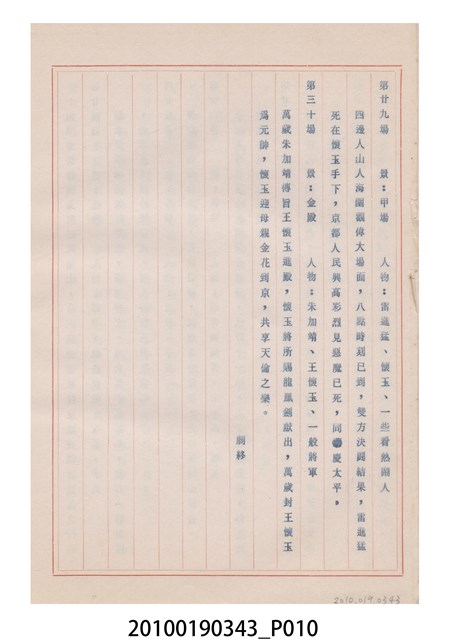 第廿九場　景：甲場　人物：雷進猛、懷玉、一些看熱鬧人
四邊人山人海圍觀偉大場面，八點時刻已到，雙方決鬥結果，雷進猛
死在懷玉手下，京都人民興高彩烈見惡魔已死，同慶太平。
第三十場　景：金殿　人物：朱加靖、王懷玉、一般將軍
萬歲朱加靖傳旨王懷玉進殿，懷玉將所賜龍鳳劍獻出，萬歲封王懷玉
爲元帥，懷玉迎母親金花到京，共享天倫之樂。
劇終
2010.019.0343
20100190343_P010